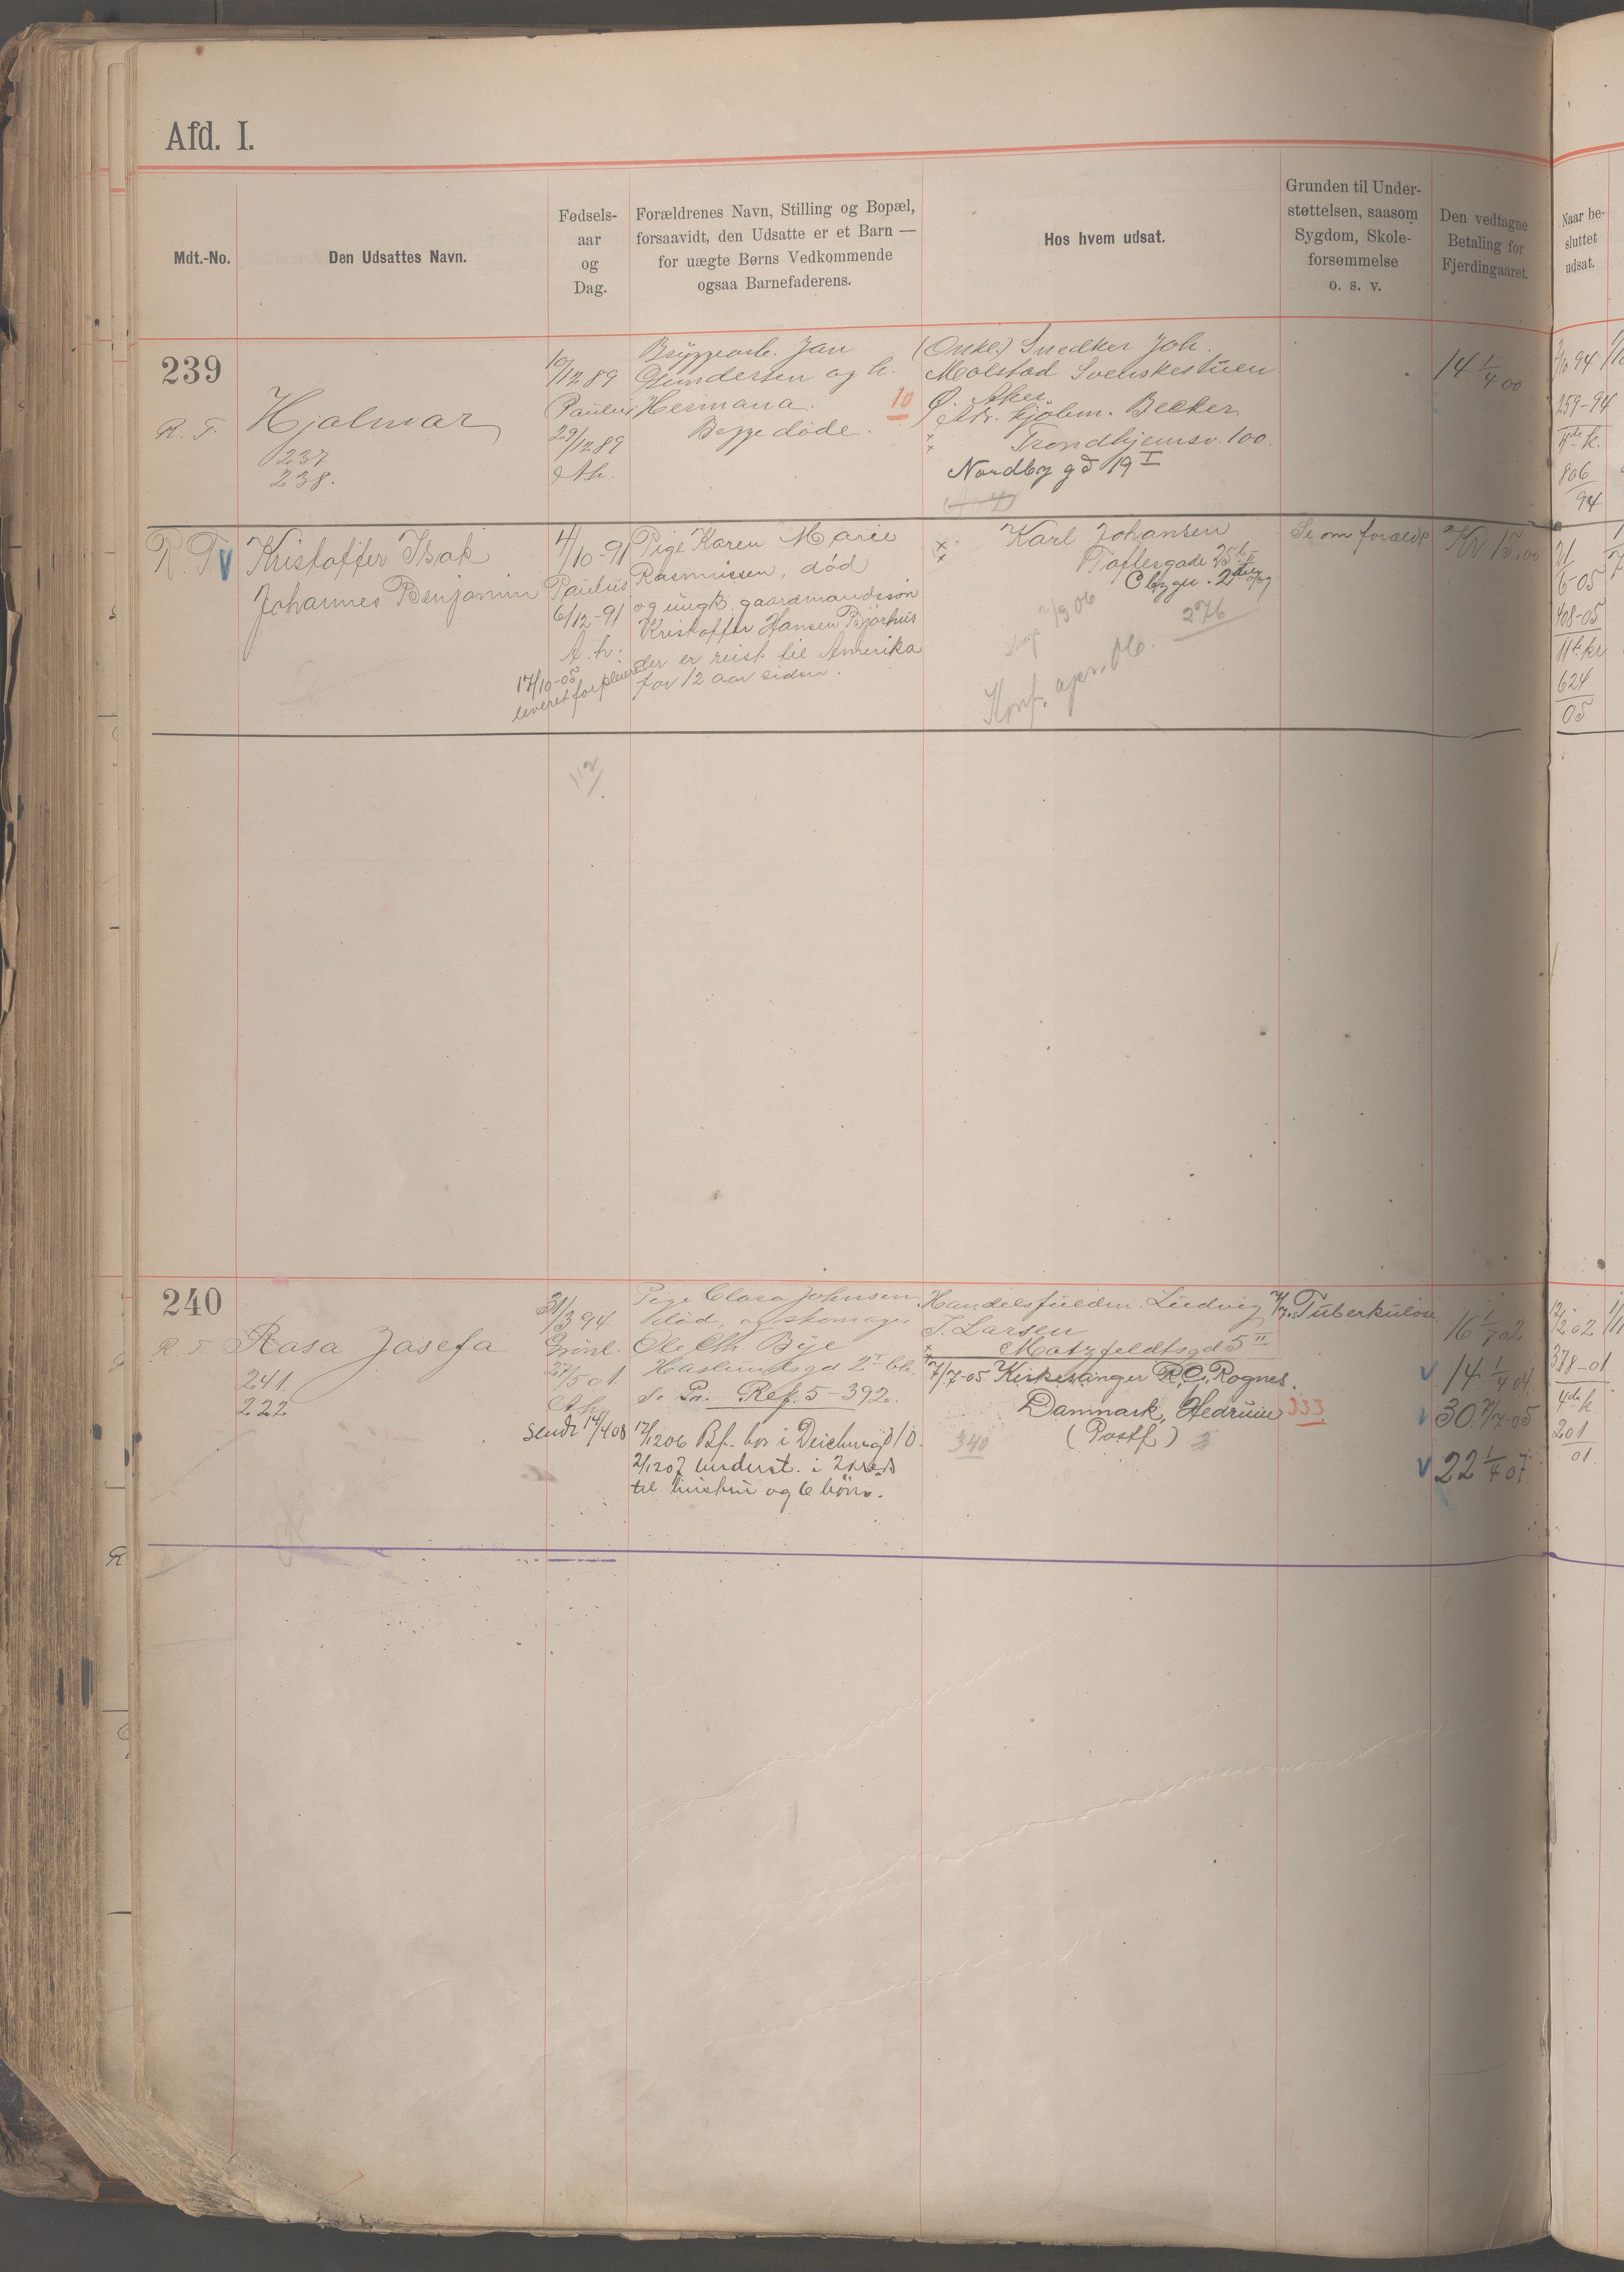 Afd. I.
Mdt.-No.
Den Udsattes Navn.
Fødsels-
aar
og
Dag.
Forældrenes Navn, Stilling og Bopæl,
forsaavidt, den Udsatte er et Barn —
for uægte Børns Vedkommende
ogsaa Barnefaderens.
Hos hvem udsat.
Grunden til Under-
støttelsen, saasom
Sygdom, Skole-
forsømmelse
o. s. v.
Den vedtagne
Betaling for
Fjerdingaaret.
Naar be-
sluttet
udsat.
239
R. F.
Hjalmar
237
238.
10/12 89
Paulus
29/12 89
A.h.
Bryggearb. Jan
Gundersen og h.
Hermana.
Begge døde.
10
(Onkel) Snedker Joh.
Molstad Svenskestuen
Ø. Aker.
Adr. Kjøbm. Becker
Trondhjemsv. 100.
Nordby gd 19 I
14 1/4 00
2/10 94
259-94
11te k.
806
94
R. F. v
Kristoffer Isak
Johannes Benjamin
4/10-91
Paulus
6/12-91
A. h:
17/10-05
leveret forpleier
Pige Karen Marie
Rasmussen, død
og ungk. gaardmandssøn
Kristoffer Hansen Bjørhus
der er reist til Amerika
for 12 aar siden.
Karl Johansen
Toftesgade 25 b II
2/9 06
276
Konf. april 06.
Se om foræld
Kr 15,00
21/6-05
408-05
11te kr
624
05
112
240
R. F.
Rosa Josefa
241.
222
31/3 94
Grønl.
27/5 01
A.h.
sendt 14/4 08
Pige Clara Johnsen
død, og skomager
Ole Chr Bye
Haslumsgd 2 I
Se Pr. Ref. 5-392.
17/12 06 Bf. bor i Deichmsgd 10.
2/12 07 underst. i 2 kreds
til hustru og 6 børn.
Handelsfuldm. Ludvig
J. Larsen
Motzfeldtsgd 5 II
7/7-05 Kirkesanger R.O. Rognes.
Danmark, Hedrum
(Postf)
333
340
Tuberkulose
16 1/7 02
v 14 1/4 04
v 30. 7/7-05
v 22 1/4 07
12/2 02
378-01
4de k
201
01.